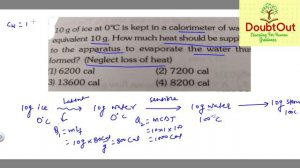 Cw = 1
DoubtOut
10 g of ice at 0°C is kept in a calorimeter of wat
equivalent 10 g. How much heat should be supp
to the apparatus to evaporate the water thus
formed? (Neglect loss of heat)
1) 6200 cal (2) 7200 cal
3) 13600 cal (4) 8200 cal
10g ice Latent 10g water Sensible 10g water 10g steam
0°C 0°C 100°C 100
Q1 = mLf Q2 = mCΔT
= 10g × 80 cal/g = 800 Cal = 10×1×10
= 1000 Cal